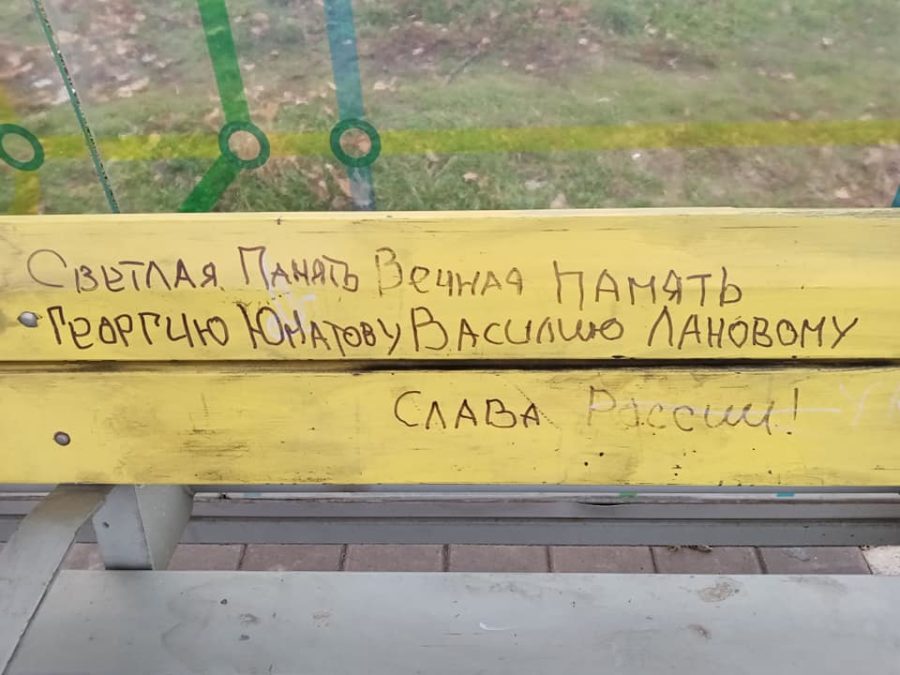 Светлая Память Вечная память
Георгию Юматову Василию Лановому
Слава России!